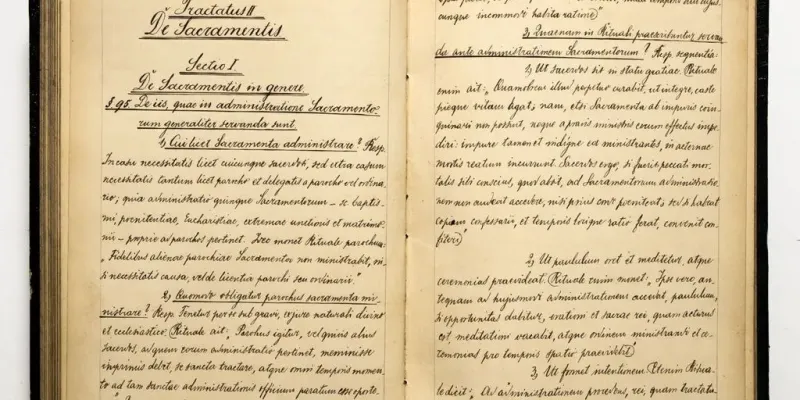 Tractatus II
De Sacramentis
Sectio I.
De Sacramentis in genere
§ 95. De iis, quae in administratione Sacramento-
rum generaliter servanda sunt.
1, Cui licet Sacramenta administrare? Resp.
In casu necessitatis licet cuicunque sacerdoti, sed extra casum
necessitatis tantum licet parocho et delegatis a parocho vel ordina-
rio; quia administratio quinque Sacramentorum – se baptis-
mi, poenitentiae, Eucharistiae, extremae unctionis et matrimo-
nii – proprie ad parochos pertinet. Isec monet Rituale parochum
„Fidelibus alienae parochiae Sacramenta non ministrabit, ni-
si necessitatis causa, vel de licentia parochi seu ordinarii."
2) Quomodo obligatur parochus sacramenta mi-
nistrare? Resp. Tenetur per se sub gravi, ex jure naturali divino
et ecclesiastico. Rituale ait: „Parochus igitur, vel quivis alius
Sacerdos, ad quem eorum administratio pertinet, meminisse
inprimis debet, se sancta tractare, atque omni temporis momen-
to ad tam sanctae administrationis officium paratum esse oporte-
cunque incommodi habita ratione)
3, Quaenam in Rituali praescribuntur servan-
da ante administrationem Sacramentorum? Resp. sequentia:
1) Ut sacerdos sit in statu gratiae. Rituale
enim ait: „Quamobrem illud perpetuo curabit, ut integre, caste
pieque vitam agat; nam, etsi Sacramenta ab impuris coin-
quinari non possint, neque a pravis ministris eorum effectus impe-
diri: impure tamen et indigne ea ministrantes, in aeternae
mortis reatum incurrunt. Sacerdos ergo, si fuerit peccati mor-
talis sibi conscius, quod absit, ad Sacramentorum administratio-
nem non audeat accedere, nisi prius corde poeniteat; sed si habeat
copiam confessarii, et temporis locique ratio ferat, convenit con-
fiteri)
2, Ut paululum oret et meditetur, atque
ceremonias praevideat. Rituale enim monet: „Ipse vero, an-
tequam ad hujusmodi administrationem accedat, paululum,
si opportunitas dabitur, orationi et sacrae rei, quam acturus
est, meditationi vacabit, atque ordinem ministrandi et ce-
remonias pro temporis spatio praevidebit)
3, Ut formet intentionem. Etenim Ritua-
le dicit: „Ad administrationem procedens, rei, quam tractatu-